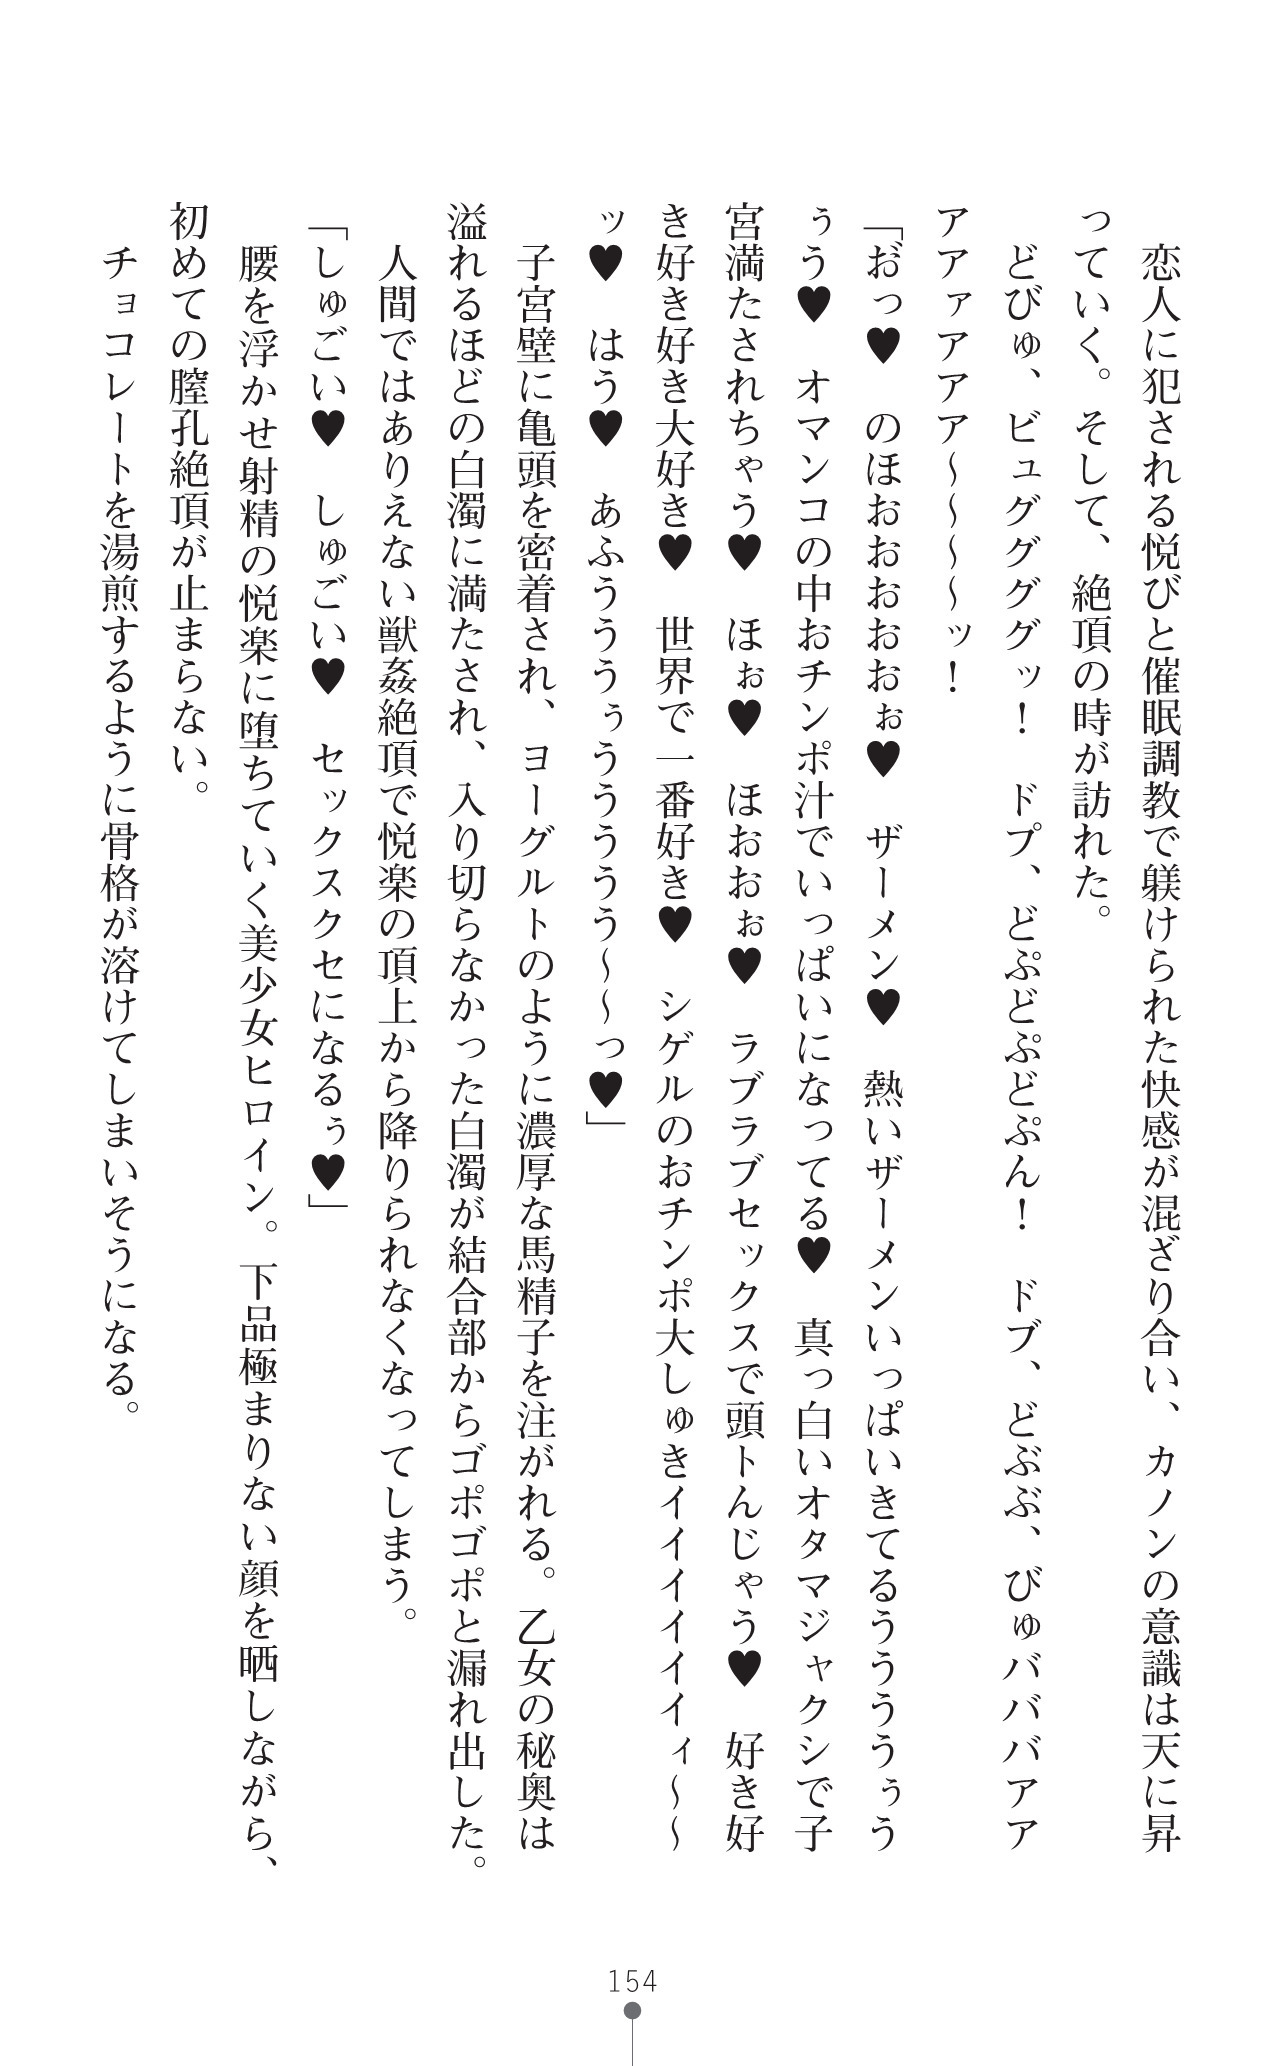 恋人に犯される悦びと催眠調教で躾けられた快感が混ざり合い、カノンの意識は天に昇
っていく。そして、絶頂の時が訪れた。
どびゅ、ビュググググッ！　ドプ、どぷどぷどぷん！　ドブ、どぶぶ、びゅバババアア
アアァアアア～～～～ッ！
「お゛っ♥　のほおおおおおぉ♥　ザーメン♥　熱いザーメンいっぱいきてるううううぅう
ぅう♥　オマンコの中おチンポ汁でいっぱいになってる♥　真っ白いオタマジャクシで子
宮満たされちゃう♥　ほぉ♥　ほおおぉ♥　ラブラブセックスで頭トんじゃう♥　好き好
き好き好き大好き♥　世界で一番好き♥　シゲルのおチンポ大しゅきイイイイイイィ～～
ッ♥　はう♥　あふうううぅううううう～～っ♥」
子宮壁に亀頭を密着され、ヨーグルトのように濃厚な馬精子を注がれる。乙女の秘奥は
溢れるほどの白濁に満たされ、入り切らなかった白濁が結合部からゴポゴポと漏れ出した。
人間ではありえない獣姦絶頂で悦楽の頂上から降りられなくなってしまう。
「しゅごい♥　しゅごい♥　セックスクセになるぅ♥」
腰を浮かせ射精の悦楽に堕ちていく美少女ヒロイン。下品極まりない顔を晒しながら、
初めての膣孔絶頂が止まらない。
チョコレートを湯煎するように骨格が溶けてしまいそうになる。
154